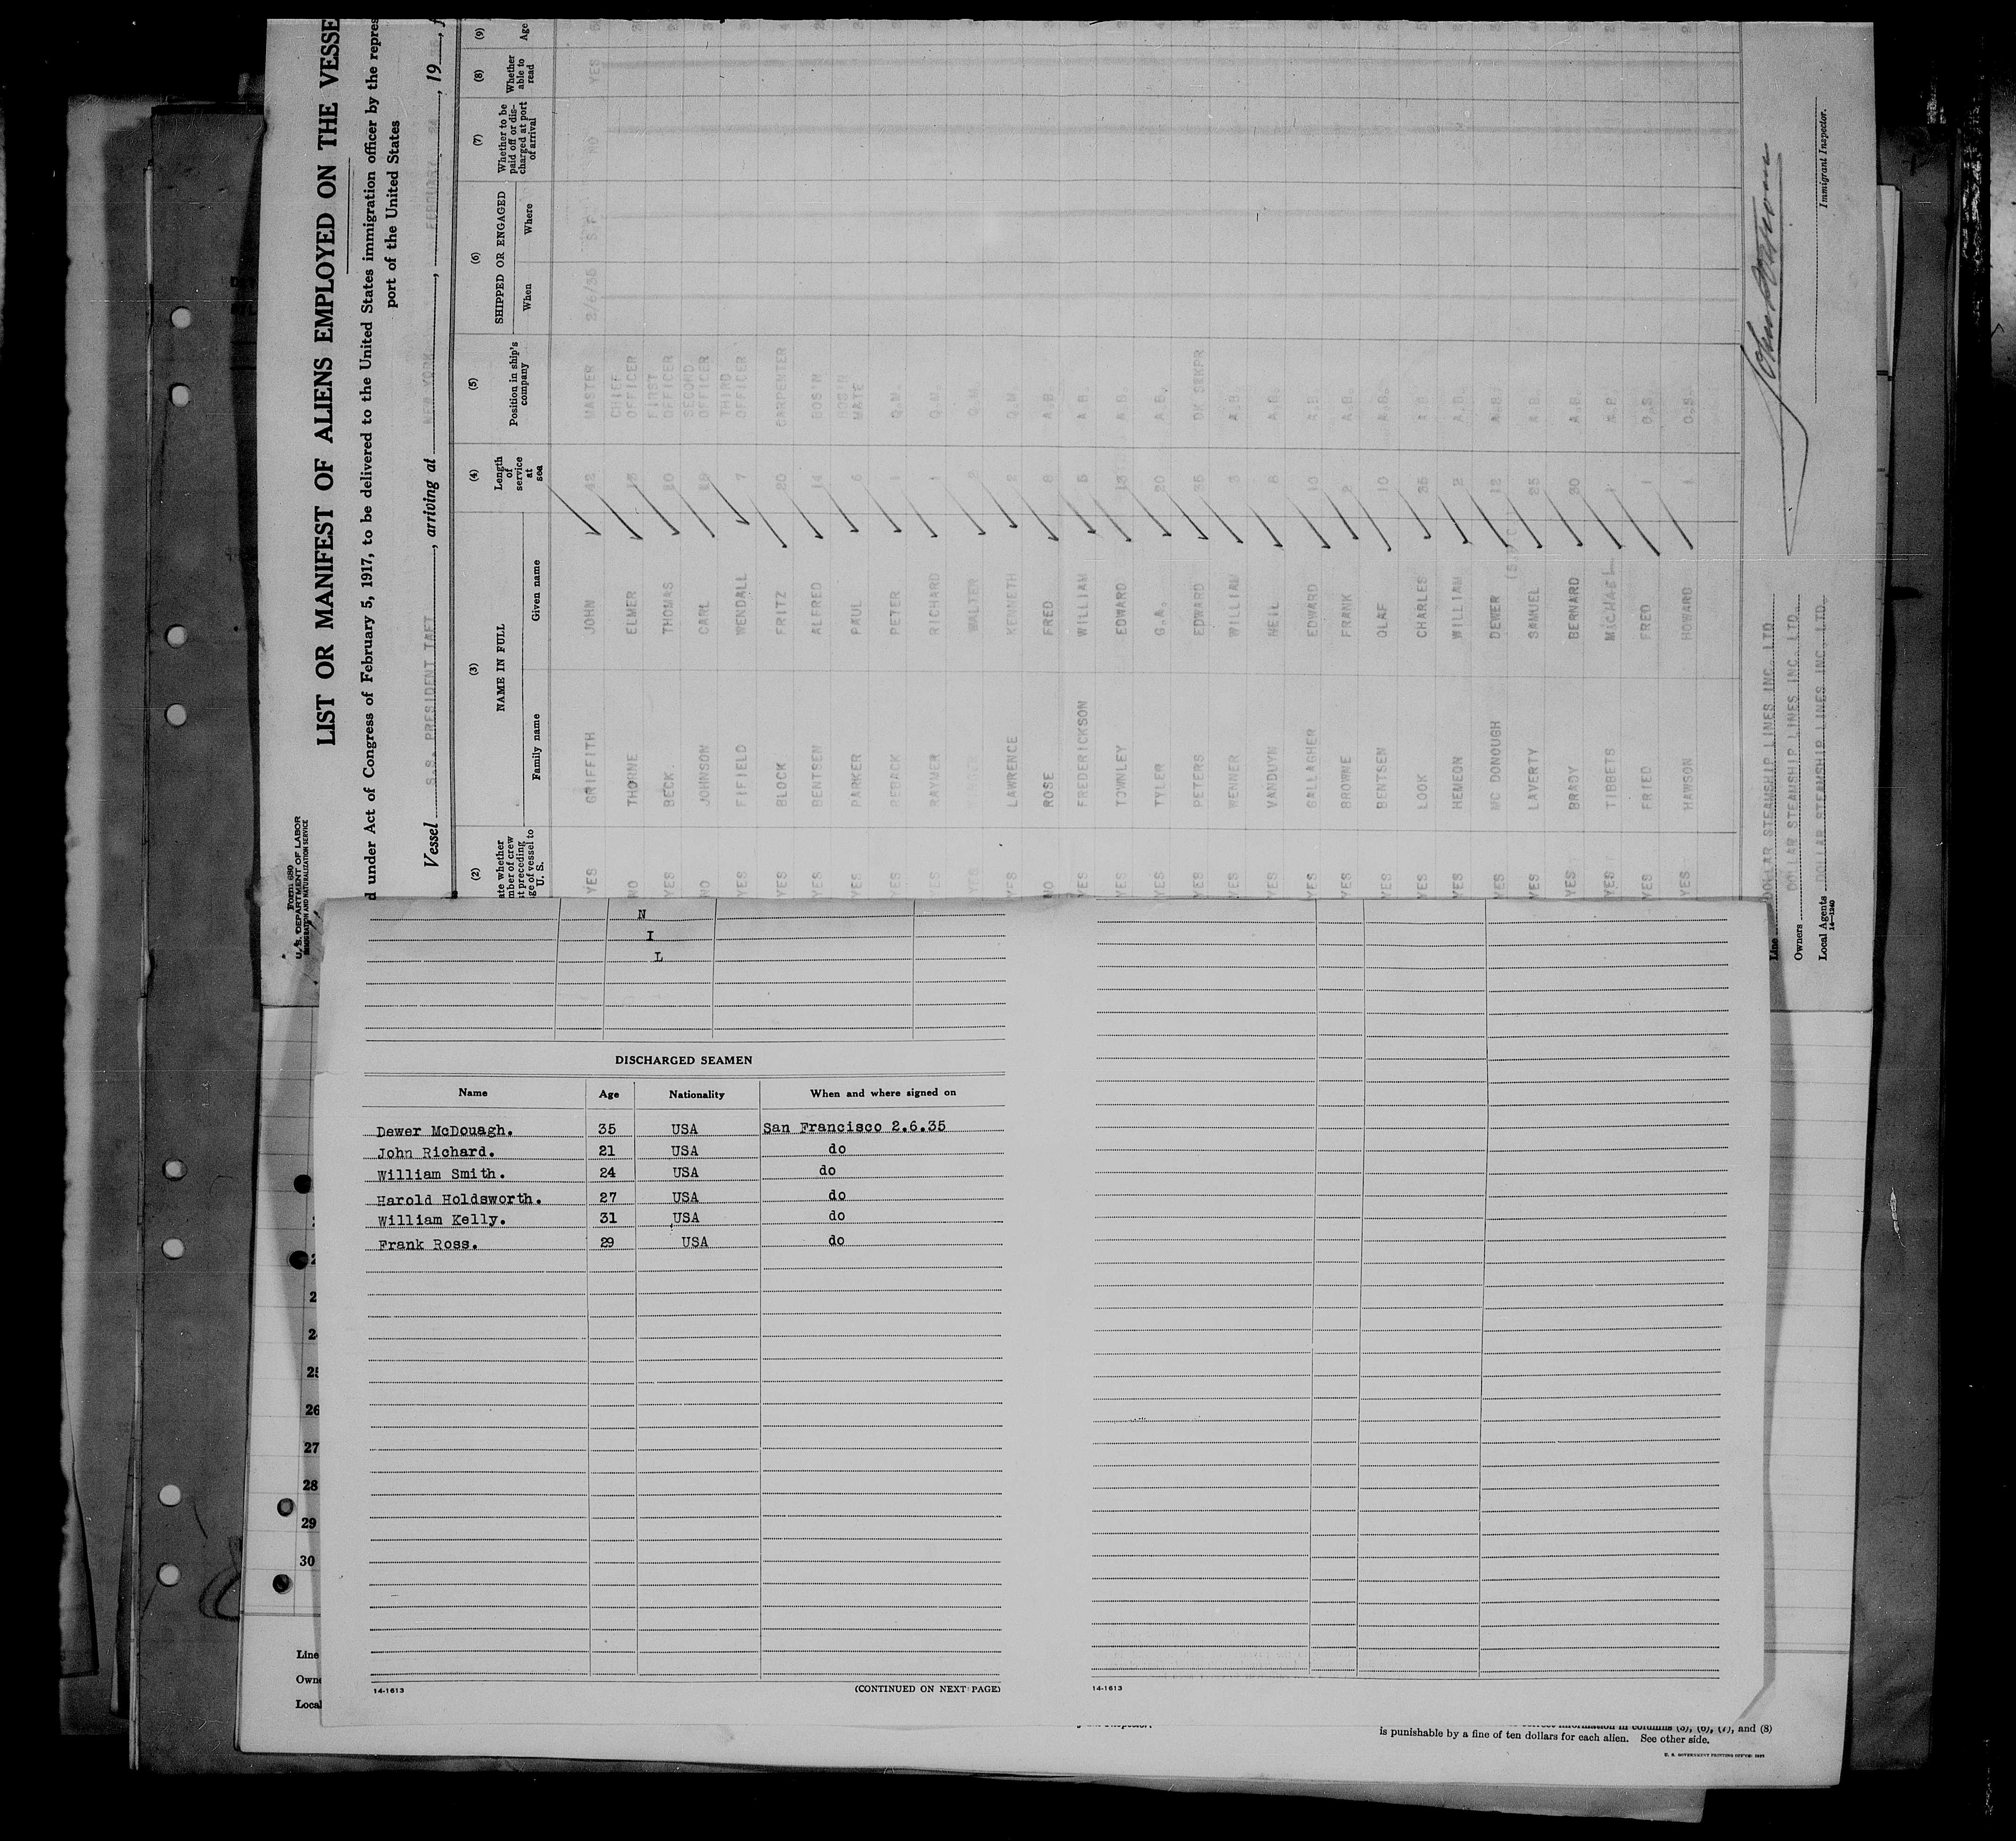 Form 680
U. S. DEPARTMENT OF LABOR
IMMIGRATION AND NATURALIZATION SERVICE
LIST OR MANIFEST OF ALIENS EMPLOYED ON THE VESSE
d under Act of Congress of February 5, 1917, to be delivered to the United States immigration officer by the repres
port of the United States
Vessel S.S. PRESIDENT TAFT, arriving at NEW YORK, FEBRUARY 24, 19
(2) (3) (4) (5) (6) (7) (8) (9)
ate whether
mber of crew
t preceding
ge of vessel to
U. S.
NAME IN FULL
Family name Given name
Length
of
service
at
sea
Position in ship's
company
SHIPPED OR ENGAGED
When Where
Whether to be
paid off or dis-
charged at port
of arrival
Whether
able to
read
Age
YES GRIFFITH JOHN 42 MASTER 2/6/35 S.F. NO YES
NO THORNE ELMER CHIEF OFFICER
YES BECK THOMAS FIRST OFFICER
NO JOHNSON CARL SECOND OFFICER
YES FIFIELD WENDALL 7 THIRD OFFICER
YES BLOCK FRITZ 20 CARPENTER
YES BENTSEN ALFRED 14 BOS'N
YES PARKER PAUL 6 BOS'N MATE
YES REBACK PETER 1 Q.M.
YES RAYMER RICHARD 1 Q.M.
YES WALTER Q.M.
YES LAWRENCE KENNETH 2 Q.M.
NO ROSE FRED 8 A.B.
YES FREDERICKSON WILLIAM 5 A.B.
YES TOWNLEY EDWARD 13 A.B.
YES TYLER G.A. 20 A.B.
YES PETERS EDWARD 35 DK SKKPR
YES WENNER WILLIAM 3 A.B.
YES VANDUYN NEIL 8 A.B.
YES GALLAGHER EDWARD 10 A.B.
YES BROWNE FRANK 2 A.B.
YES BENTSEN OLAF 10 A.B.
YES LOOK CHARLES 35 A.B.
YES HEMEON WILLIAM 2 A.B.
YES MC DONOUGH DEWER 12 A.B.
YES LAVERTY SAMUEL 25 A.B.
YES BRADY BERNARD 30 A.B.
YES TIBBETS MICHAEL 1 A.B.
YES FRIED FRED 1 O.S.
YES HAWSON HOWARD 1 O.S.
Line DOLLAR STEAMSHIP LINES INC. LTD.
Owners DOLLAR STEAMSHIP LINES INC. LTD.
Local Agents DOLLAR STEAMSHIP LINES INC. LTD.
14-1240
Immigrant Inspector.
N
I
L
DISCHARGED SEAMEN
Name Age Nationality When and where signed on
Dewer McDouagh. 35 USA San Francisco 2.6.35
John Richard. 21 USA do
William Smith. 24 USA do
Harold Holdsworth. 27 USA do
William Kelly. 31 USA do
Frank Ross. 29 USA do
14-1613 (CONTINUED ON NEXT PAGE)
14-1613
2
24
25
26
27
28
29
30
Line
Owne
Local
is punishable by a fine of ten dollars for each alien. See other side.